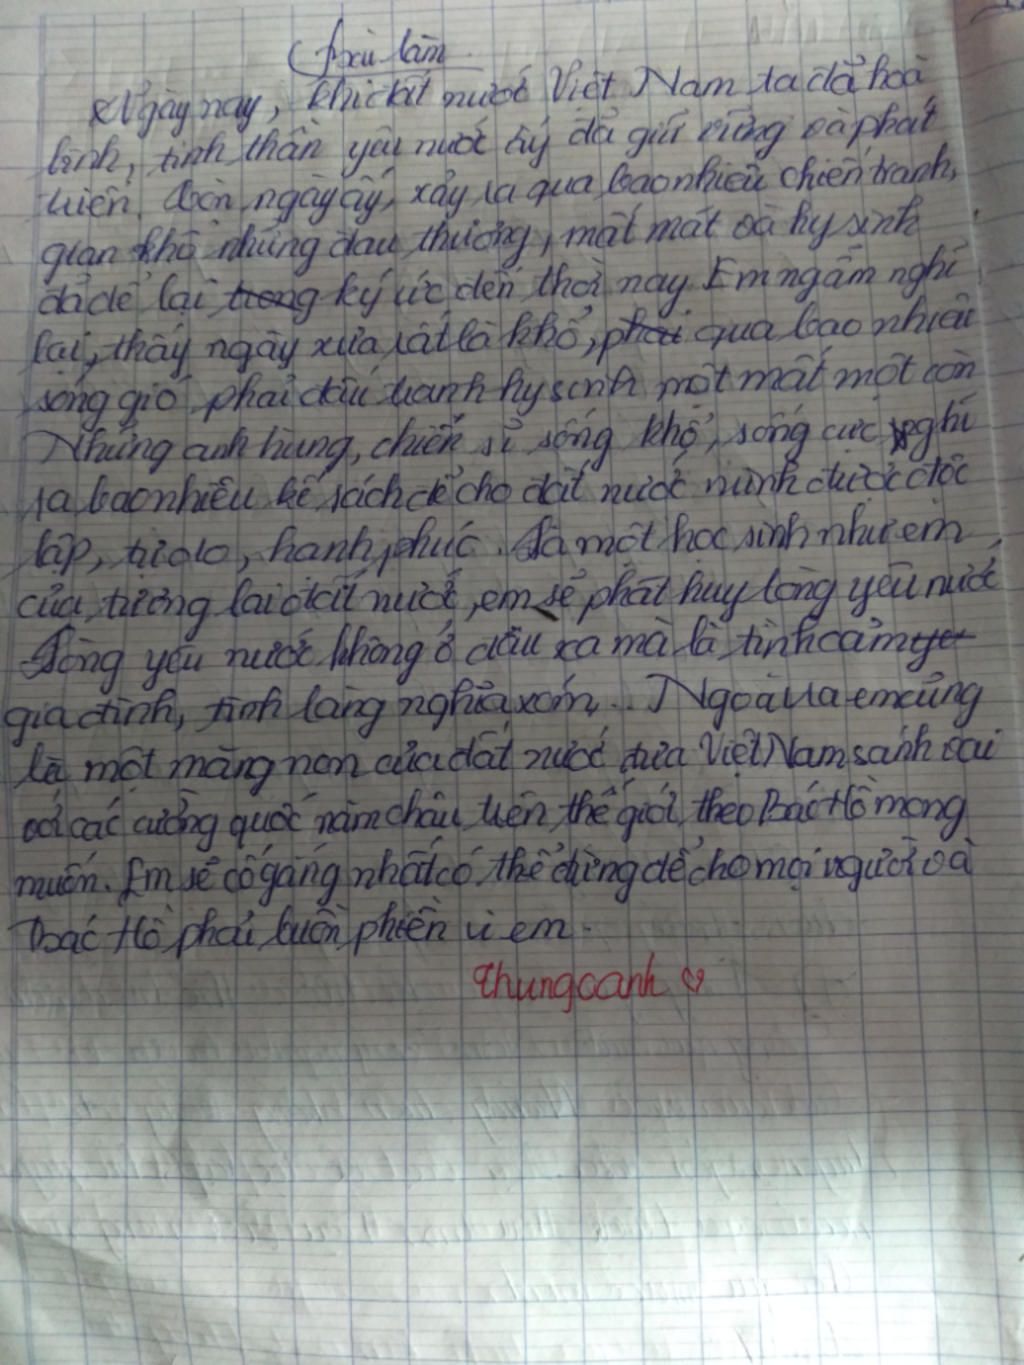 Bài làm
Ngày nay, khi đất nước Việt Nam ta đã hoà
bình, tinh thần yêu nước ấy đã giữ vững và phát
triển. Còn ngày ấy, xảy ra qua bao nhiêu chiến tranh,
gian khổ những đau thương, mất mát và hy sinh
đã để lại trong ký ức đến thời nay. Em ngẫm nghĩ
lại, thấy ngày xưa rất là khổ, phải qua bao nhiêu
sóng gió phải đấu tranh hy sinh một mất một còn
Những anh hùng, chiến sĩ sống khổ, sống cực nghĩ
ra bao nhiêu kế sách để cho đất nước mình được độc
lập, tự do, hạnh phúc. Là một học sinh như em,
của tương lai đất nước, em sẽ phát huy lòng yêu nước
Lòng yêu nước không ở đâu xa mà là tình cảm
gia đình, tình làng nghĩa xóm,... Ngoài ra em cũng
là một măng non của đất nước đưa Việt Nam sánh vai
với các cường quốc năm châu trên thế giới theo Bác Hồ mong
muốn. Em sẽ cố gắng nhất có thể đừng để cho mọi người và
Bác Hồ phải buồn phiền vì em.
Thungoanh ♡